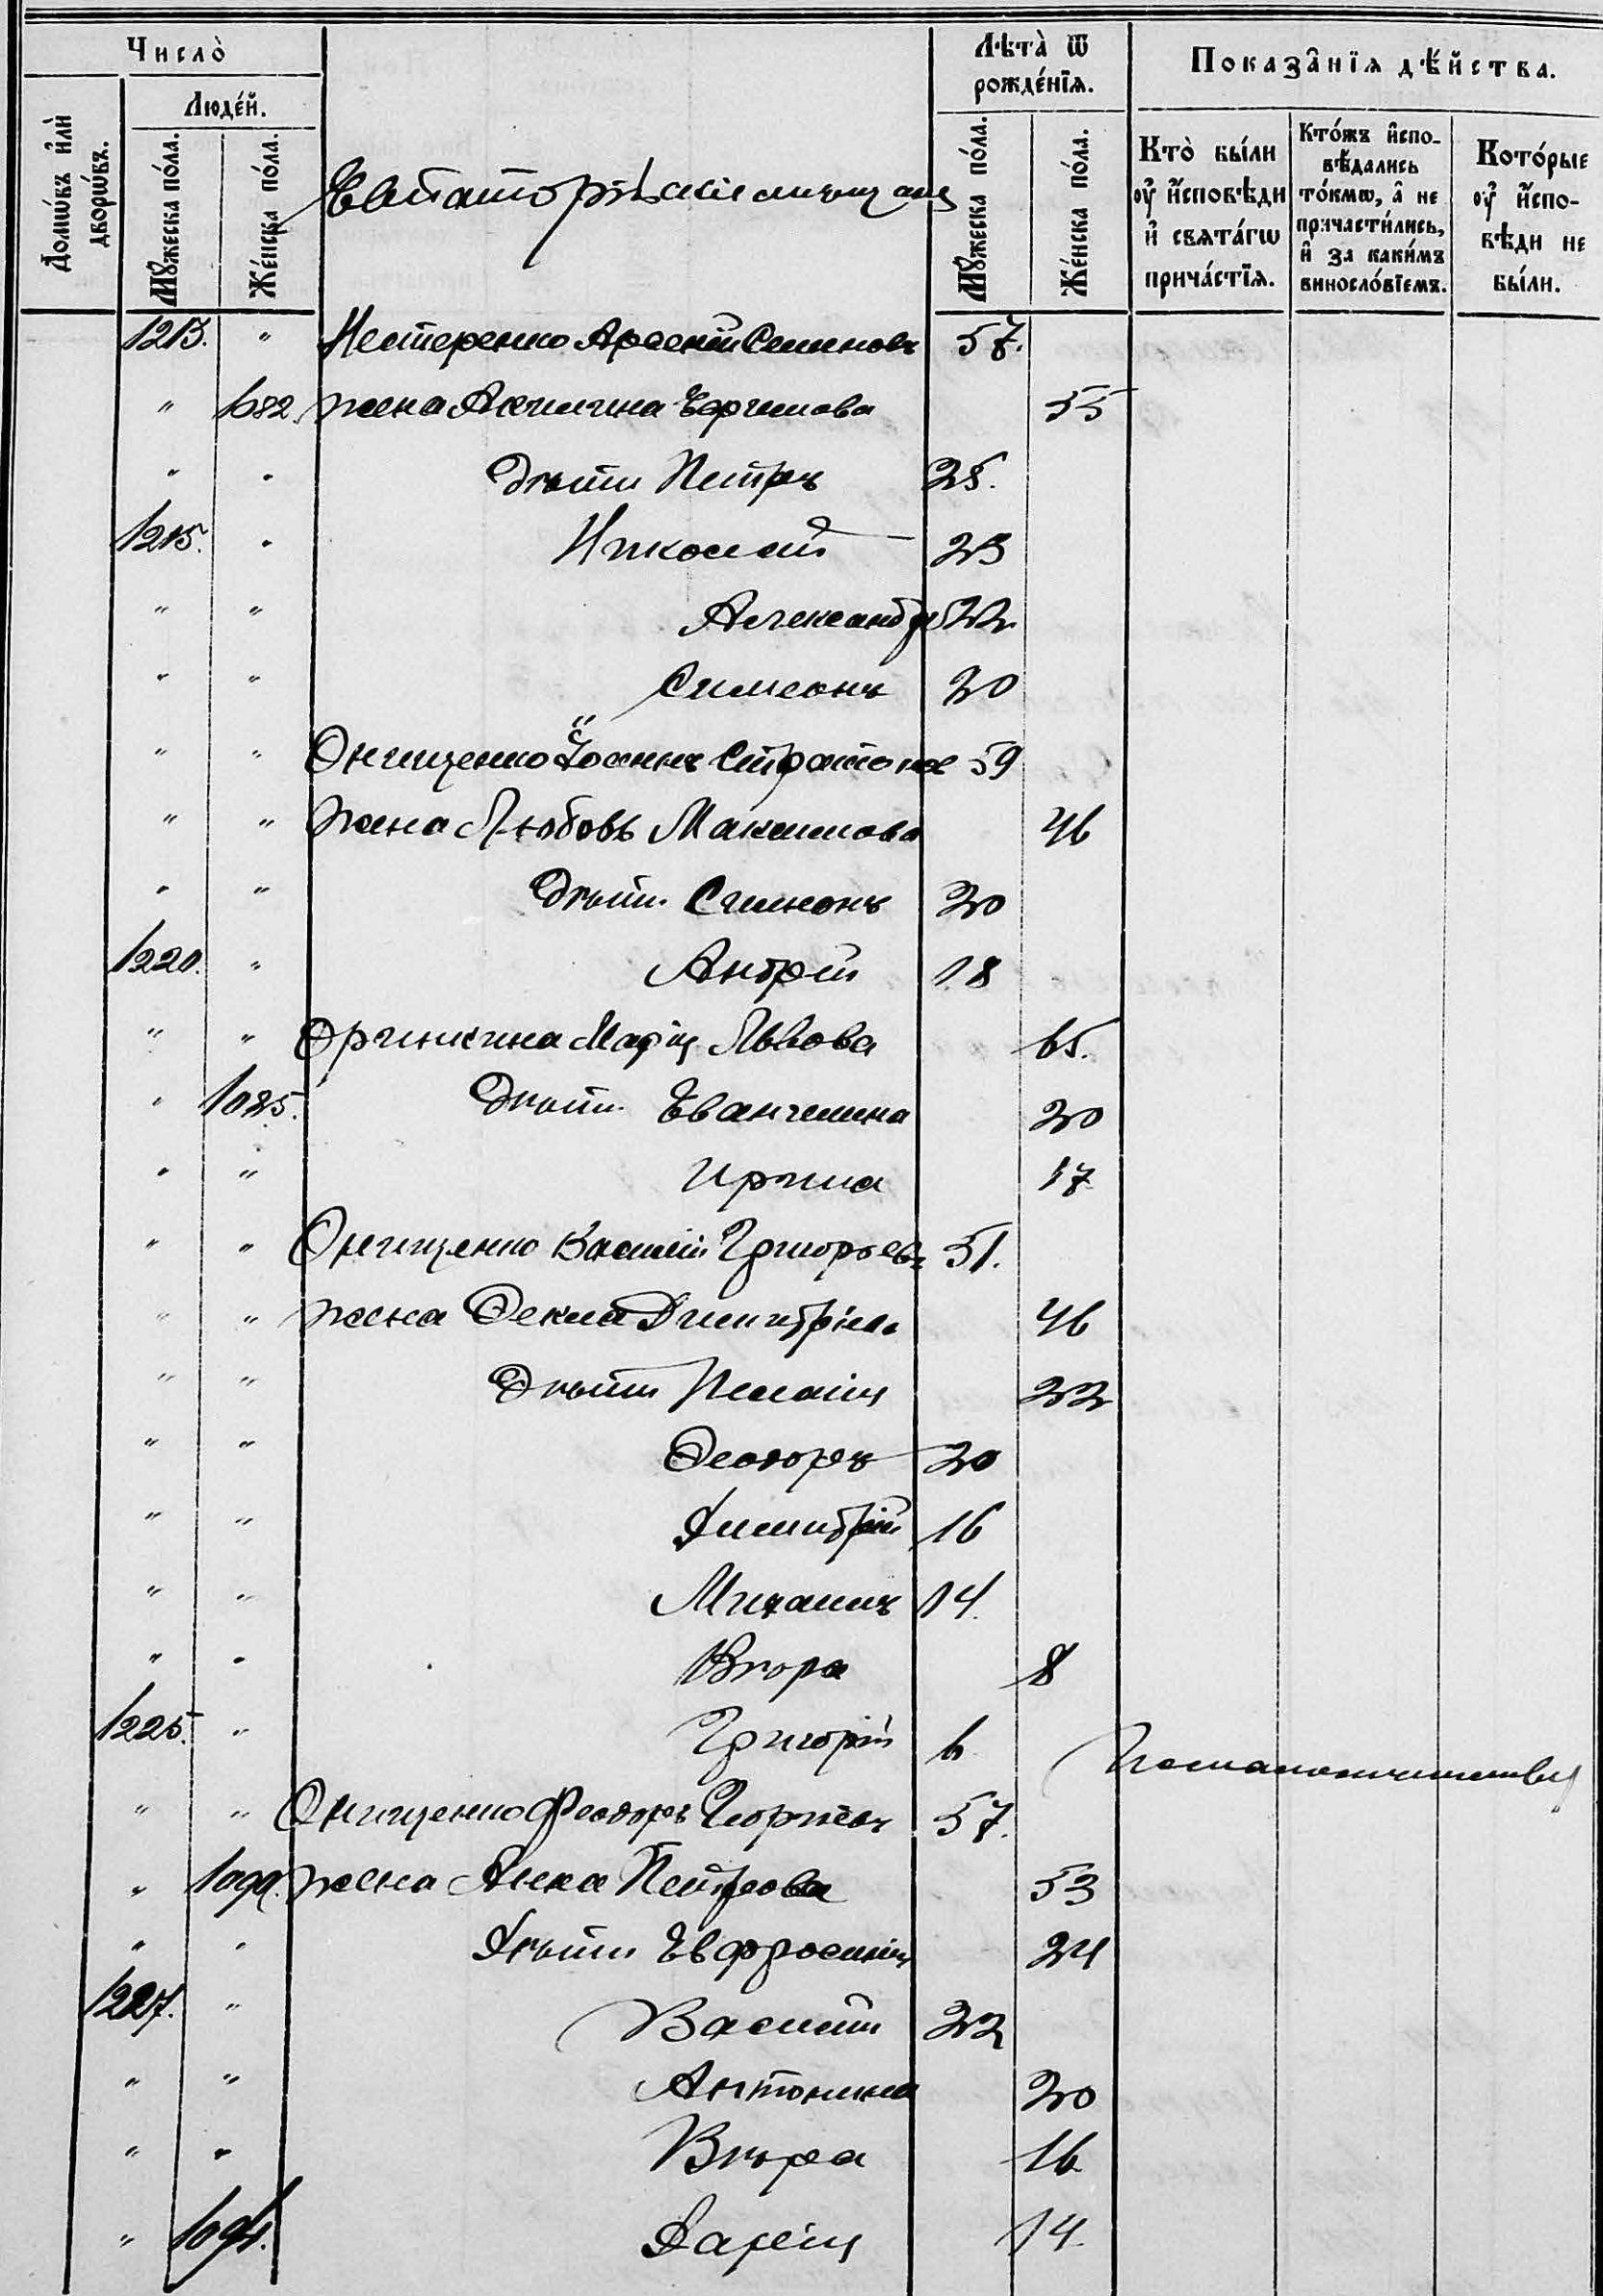 Число̀
Люде́й.
Домѡ́въ и҆лѝ дворѡ́въ.
Мꙋ́жеска по́ла.
Же́нска по́ла.
Евпаторійскіе мѣщане
Лѣта̀ ѿ рожде́нїѧ.
Мꙋ́жеска по́ла.
Же́нска по́ла.
Показа̑нїѧ дѣ́йства.
Кто̀ бы́ли ᲂу҆ и҆́сповѣди и҆ свѧта́гѡ прича́стїѧ.
Кто́жъ и҆спо-вѣ́дались то́кмѡ, а҆ не причасти́лись, и҆ за каки́мъ виносло́вїемъ.
Кото́рые ᲂу҆ и҆́спо-вѣди не бы́ли.
1213. " Нестеренко Арсеній Симеоновъ 57.
" 1082. жена Акилина Ефимова 55
" " дѣти Петръ 25.
1215. " Николай 23
" " Александръ 22
" " Симеонъ 20
" " Онищенко Іоаннъ Стратоновъ 59
" " жена Любовь Максимова 46
" " дѣти Симеонъ 20
1220. " Андрей 18
" " Марія Львова 65.
" 1085. дѣти 20
" " Ирина 17
" " Онищенко Василій Григорьевъ 51.
" " жена Ѳекла Димитріева 46
" " дѣти Пелагія 22
" " Ѳеодоръ 20
" " Димитрій 16
" " Михаилъ 14.
" " Вѣра 8
1225. " Григорій 6
" " Онищенко Феодоръ Георгіевъ 57.
" 1090. жена Анна Петрова 53
" " дѣти Евфросинія 24
1227. " Василій 22
" " Антонина 20
" " Вѣра 16
" 1094. Дарія 14.